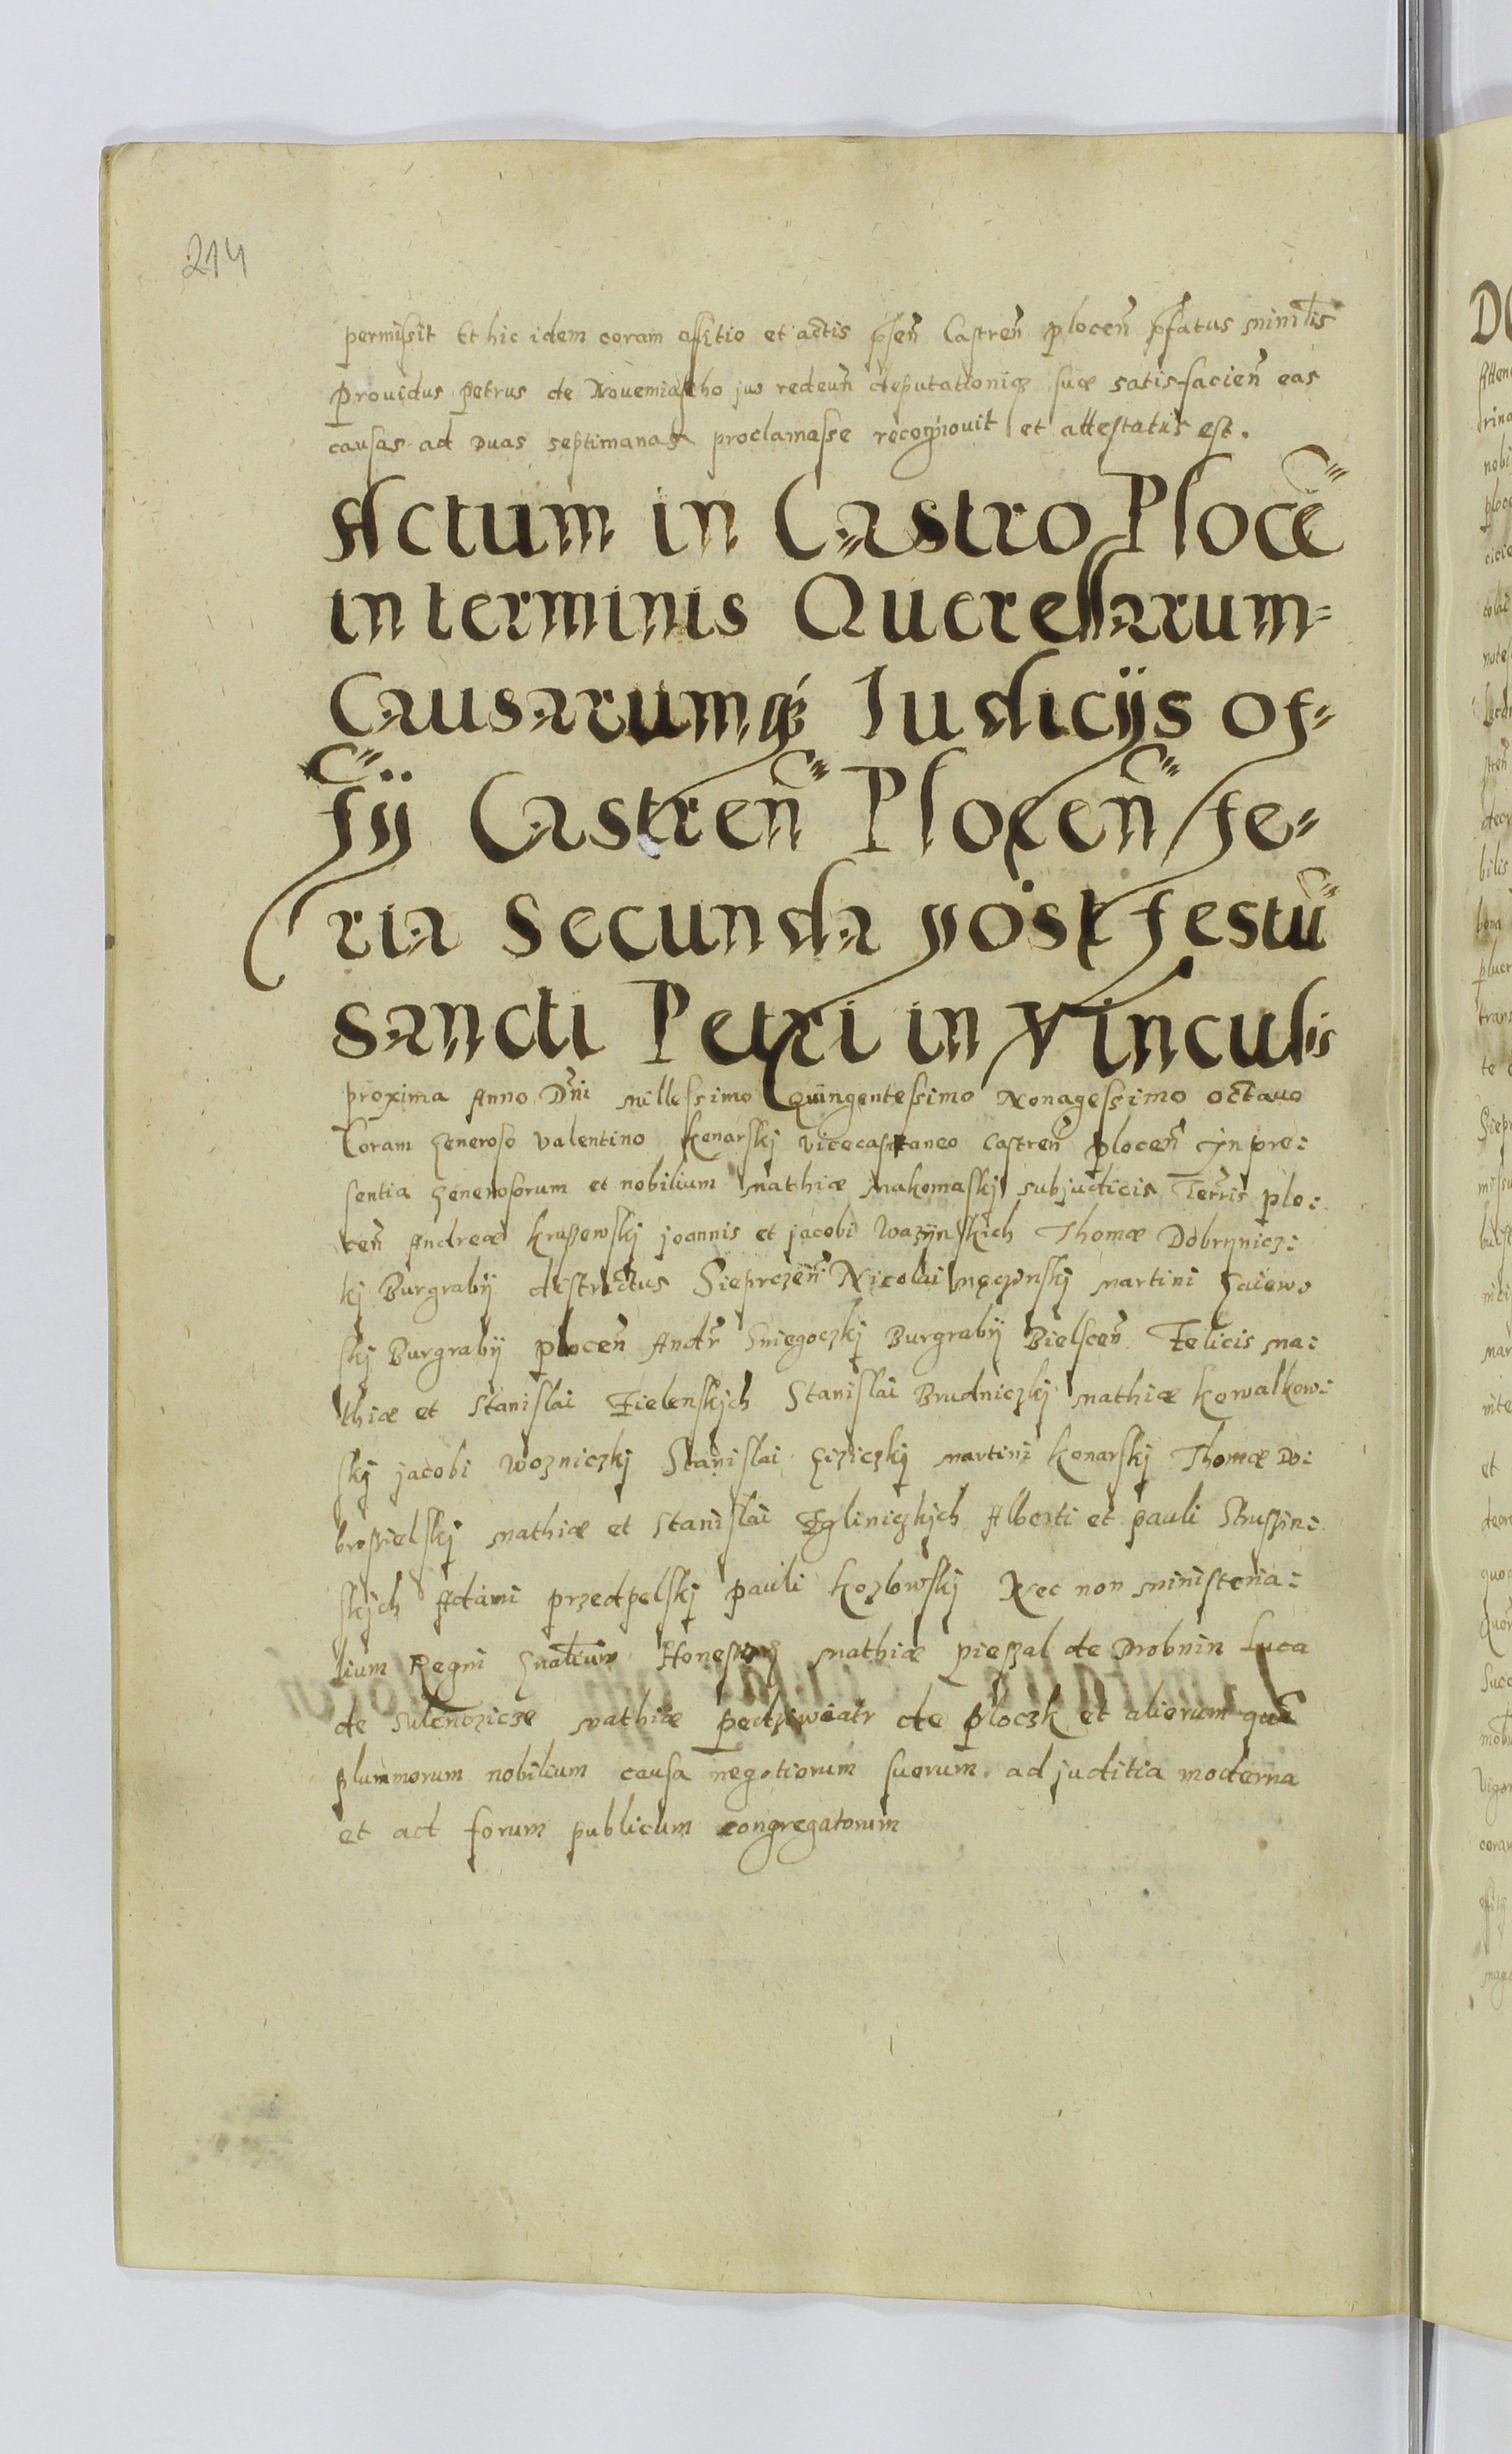 214
permisit Et hic idem coram offitio et actis p̃sen̄ Castren̄ plocen̄ p̃fatus ministr̃lis
Prouidus petrus de Nouemiastho jus redeun̄ deputationiq₃ suæ satisfacien̄ eas
causas ad Duas septimanas proclamasse recognouit et attestatus est.
Actum in Castro Plocē
in terminis Querellarum=
Causarumq₃ Iudicijs of=
fij Castren̄ Plocen̄ fe=
ria Secunda post festū
sancti Petri in Vinculis
proxima Anno Dn̄i millessimo Quingentessimo Nonagessimo octauo
Coram Generoso Valentino Konarskj vicecapitaneo castren̄ plocen̄ Jn pre:
sentia Generosorum et nobilium Mathiæ Makomaskj subjudicis Terris plo:
cen̄ Andreæ Kruszewskj joannis et jacobi Wazijnskich Thomæ Dobrynicz:
kj Burgrabij districtus Sieprczen̄ Nicolai męczinskj Martini Gaiewo
skj Burgrabij plocen̄ Andr̄ Sniegoczkj Burgrabij Bielscen̄ Felicis Ma:
thiæ et Stanislai Zielenskjch Stanislai Brudniczkj Mathiæ Kowalkow:
skj jacobi Wozniczkj Stanislai Giziczkj Martini Konarskj Thomæ Do:
brosielskj Mathiæ et Stanislai Zgliniczkjch Alberti et pauli Struszin:
skjch Adami przedpelskj pauli Kozlowskj Nec non ministeria:
lium Regni Gnalium Honestorq₃ Mathiæ pieszal de Drobnin Luca
de Sulenczicze Mathiæ pedziwiatr de ploczk et aliorum quã
plurimorum nobilium causa negotiorum suorum ad juditia moderna
et ad forum publicum congregatorum